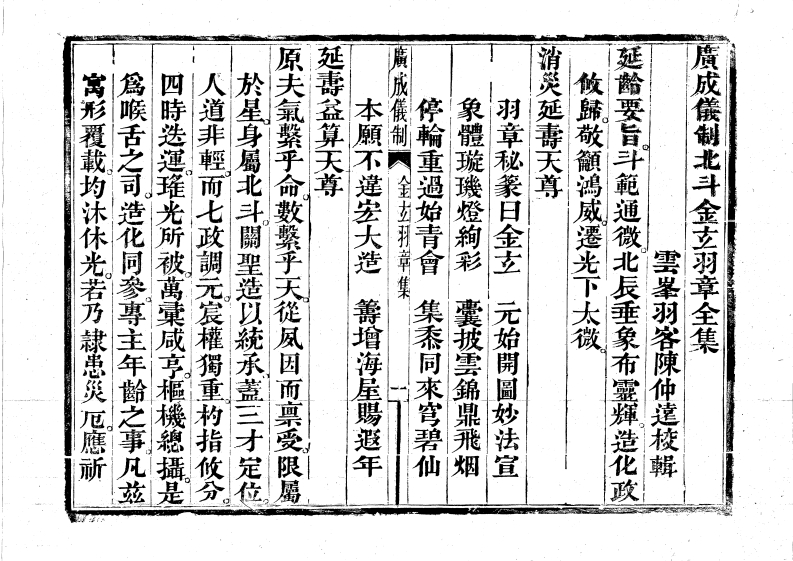 廣成儀制北斗金玄羽章全集
雲峯羽客陳仲遠校輯
延齡要旨。斗範通微。北辰垂象布靈輝。造化政
攸歸。敬籲鴻威。遷光下太微。
消災延壽天尊
羽章秘篆曰金玄　元始開圖妙法宣
象體璇璣燈絢彩　囊披雲錦鼎飛烟
停輪重過始青會　集黍同來穹碧仙
本願不違宏大造　籌增海屋賜遐年
廣成儀制　金玄羽章集　一
延壽益算天尊
原夫氣繫乎命。數繫乎天。從夙因而禀受。限屬
於星。身屬北斗。關聖造以統承。蓋三才定位。
人道非輕。而七政調元。宸權獨重。杓指攸分。
四時迭運。璀光所被。萬彙咸亨。樞機總攝。是
爲喉舌之司。造化同參。專主年齡之事。凡茲
寓形覆載。均沐休光。若乃隷患災厄。應祈